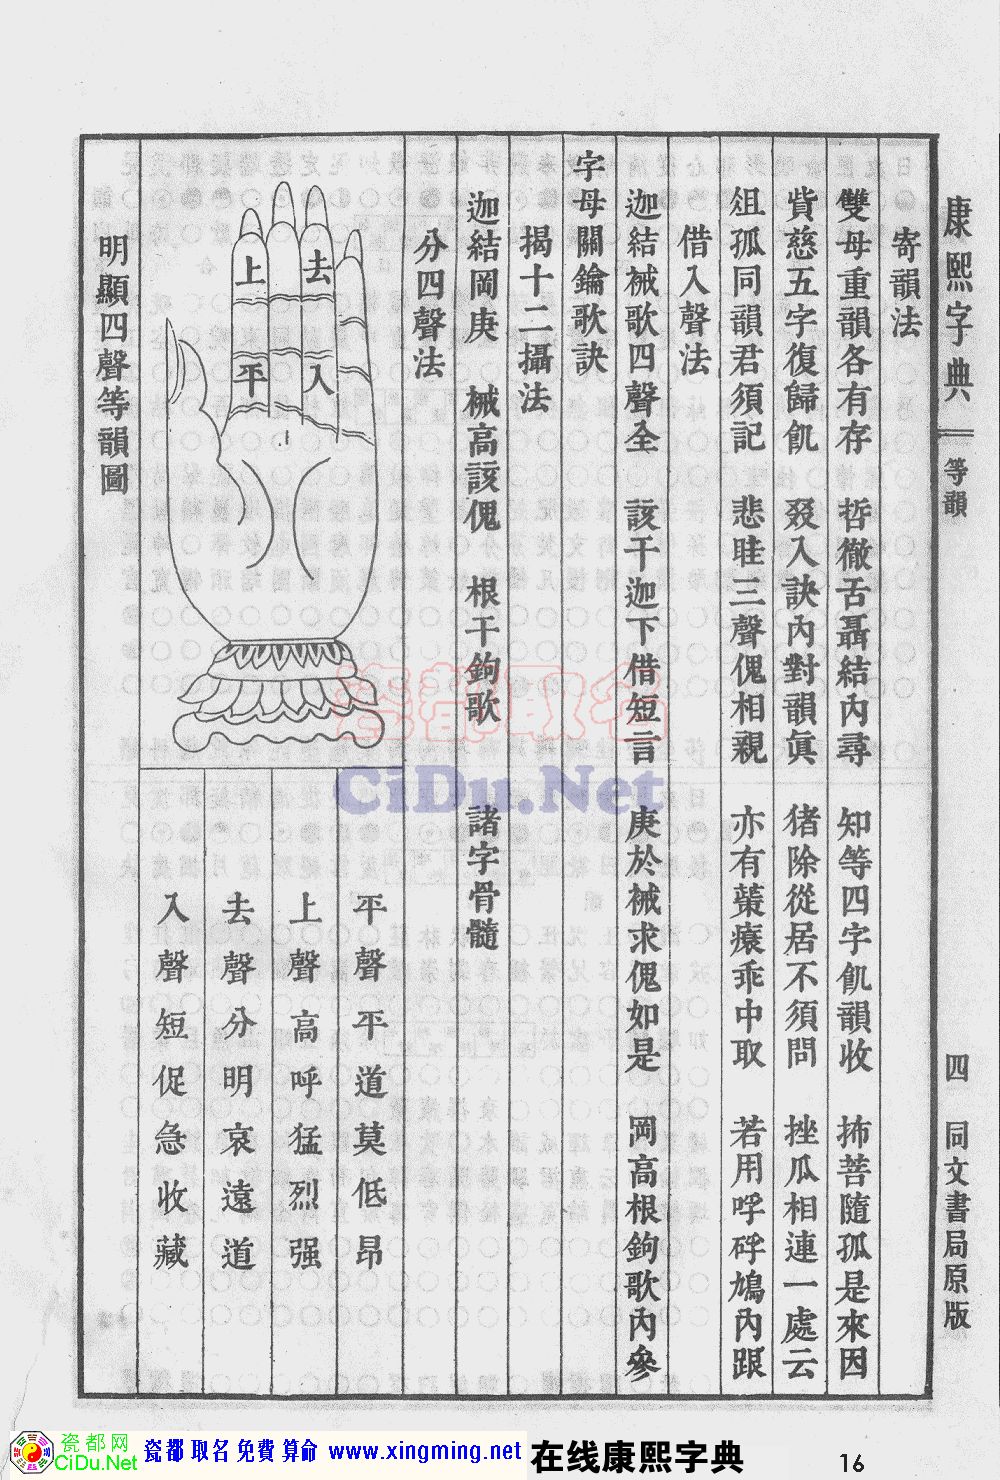 康熙字典 等韻 四 同文書局原版
寄韻法
雙母重韻各有存 哲徹舌聶結內尋 知等四字飢韻收 抪菩隨孤是來因
貲慈五字復歸飢 叕入訣內對韻眞 猪除從居不須問 挫瓜相連一處云
俎孤同韻君須記 悲眭三聲傀相親 亦有蘃瘝乖中取 若用呼碀鳩內跟
借入聲法
迦結祴歌四聲全 該干迦下借短言 庚於祴求傀如是 岡高根鉤歌內參
字母關鑰歌訣
揭十二攝法
迦結岡庚 祴高該傀 根干鉤歌 諸字骨髓
分四聲法
上 去
平 入
平聲平道莫低昂
上聲高呼猛烈强
去聲分明哀遠道
入聲短促急收藏
明顯四聲等韻圖
瓷都取名
CiDu.Net
瓷都网
CiDu.Net
瓷都取名免費算命 www.xingming.net
在线康熙字典
16